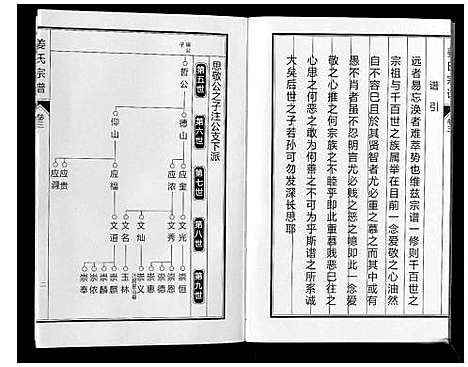 谱引
远者易忘涣者难萃势也维兹宗谱一修则千百世之
宗祖与千百世之族属举在目前一念爱敬之心油然
自不容已且于其贤智者尤必重之慕而其中或有
愚不肖者虽不忍明言尤必贱之恶之噫即此一爱
敬之心推之何宗族之不睦乎即此重慕贱恶巳往之
心思之何恶之敢为何善之不可为乎斯谱之所系诚
大矣后世之子若孙可勿发深长思耶
姜氏宗谱
卷三
思敬公之子注公支下派
第五世
第六世
第七世
第八世
第九世
哲公
德山
仰山
应奎
应浓
应福
应贵
应洞
文光
文秀
文灿
文名
文道
崇恒
崇恩
崇德
崇惠
崇义
玉林
崇麒
崇麟
崇依
崇奉
二